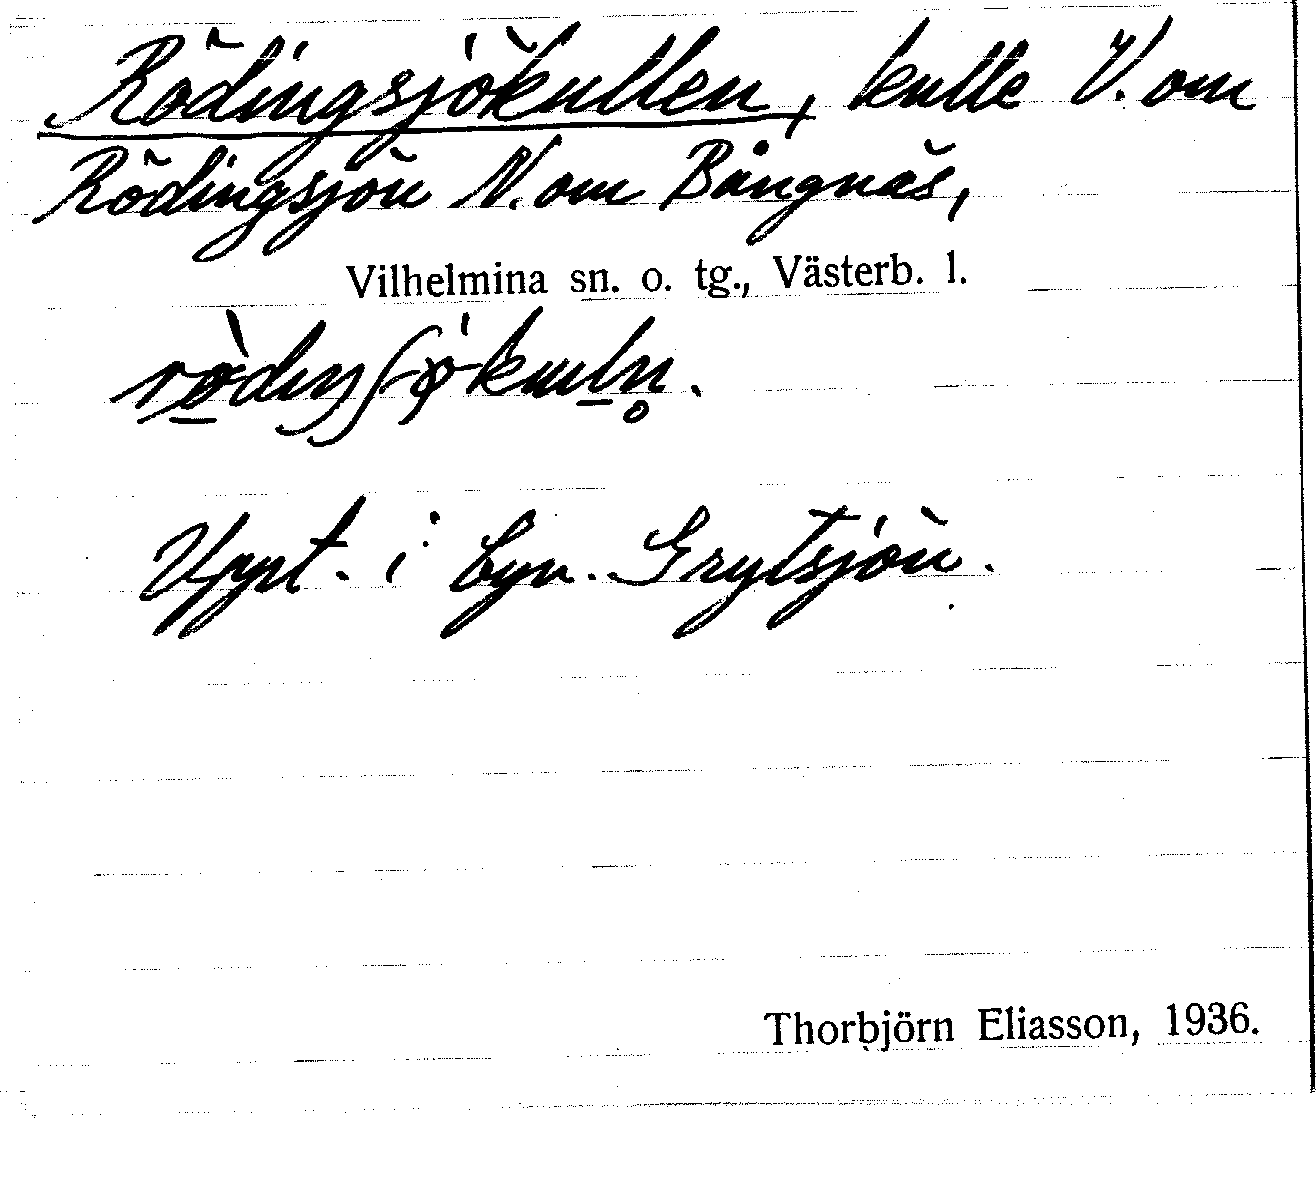 Rödingsjökullen, kulle V. om
Rödingsjön N. om Bångnäs,
Vilhelmina sn. o. tg., Västerb. l.
Uppt. i byn. Grytsjön.
Thorbjörn Eliasson, 1936.